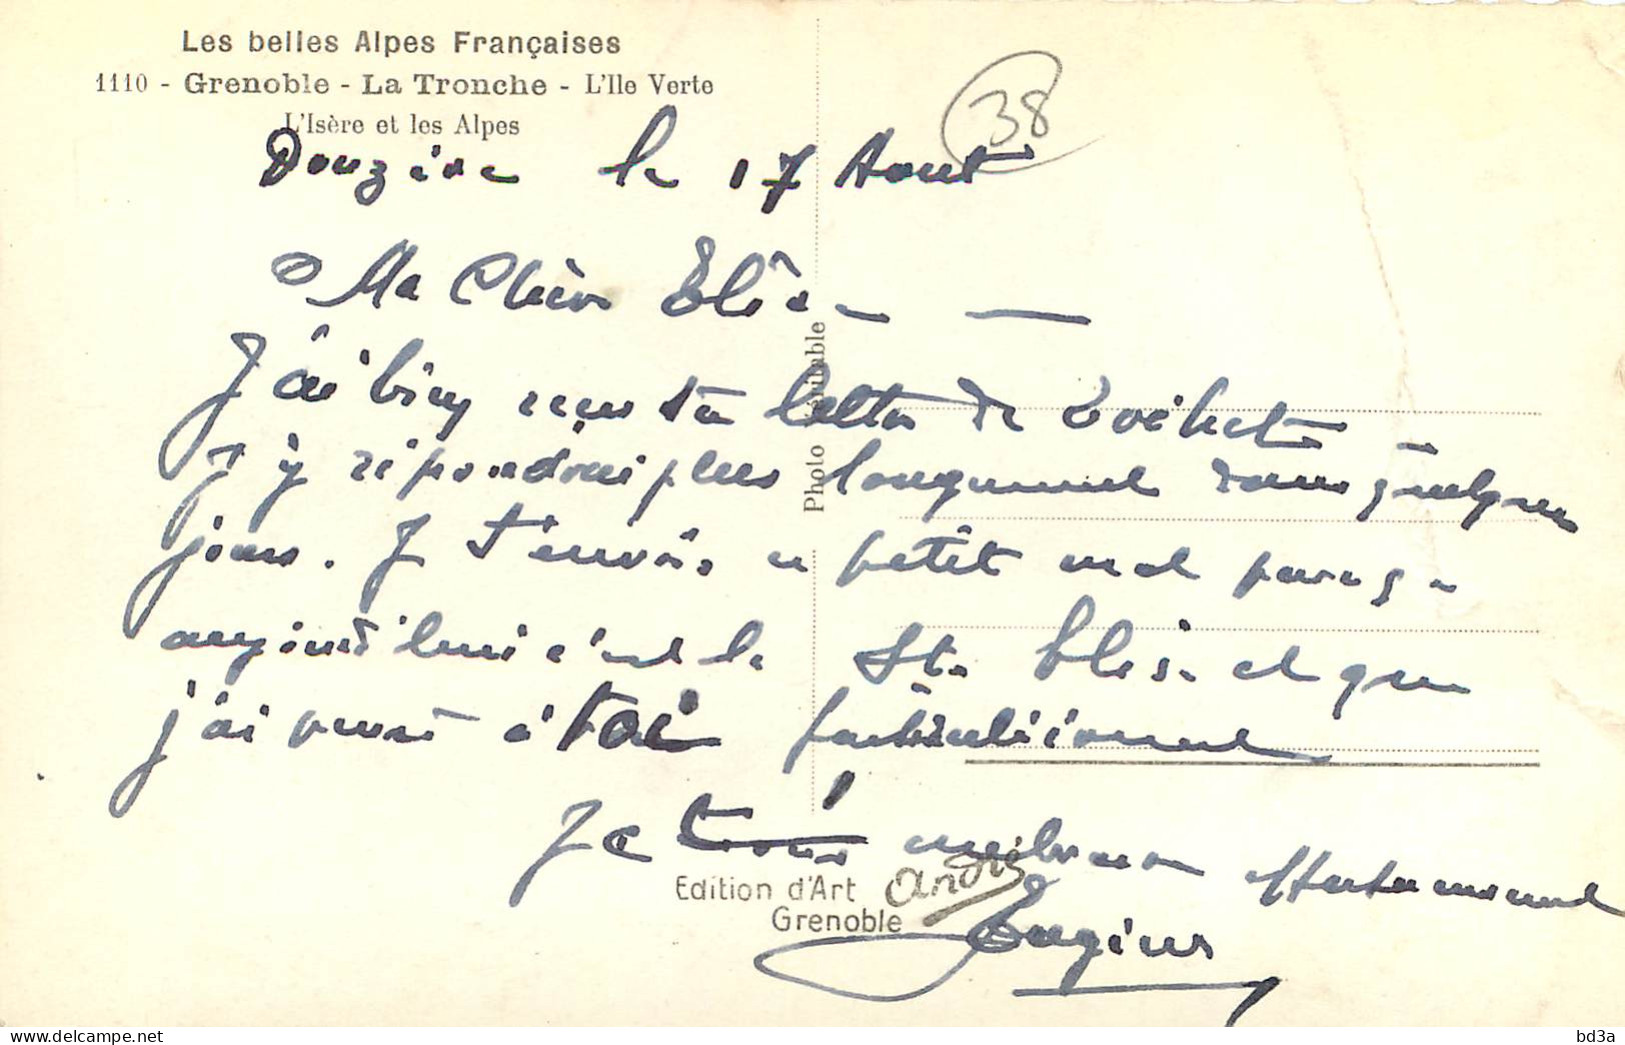 Les belles Alpes Françaises
1110 - Grenoble - La Tronche - L'Ile Verte
L'Isère et les Alpes
38
Donzère le 17 Aout
Ma Chère Elise
J'ai bien reçu ta lettre de
J'y répondrai plus longuement dans quelques
jours. Je t'envoie ce petit mot parce que
aujourd'hui c'est la Ste Elise et que
j'ai pensé à toi particulièrement
Je t'embrasse affectueusement
Photo véritable
Edition d'Art André
Grenoble
bd3a